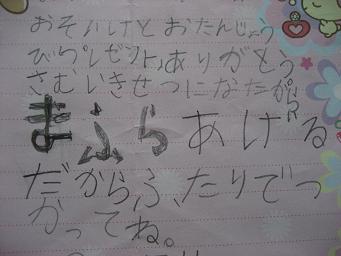 おそいけどおたんじょう
びぷれゼントありがとう
さむいきせつになたから
まふらあげる
だからふたりでつ
かってね。